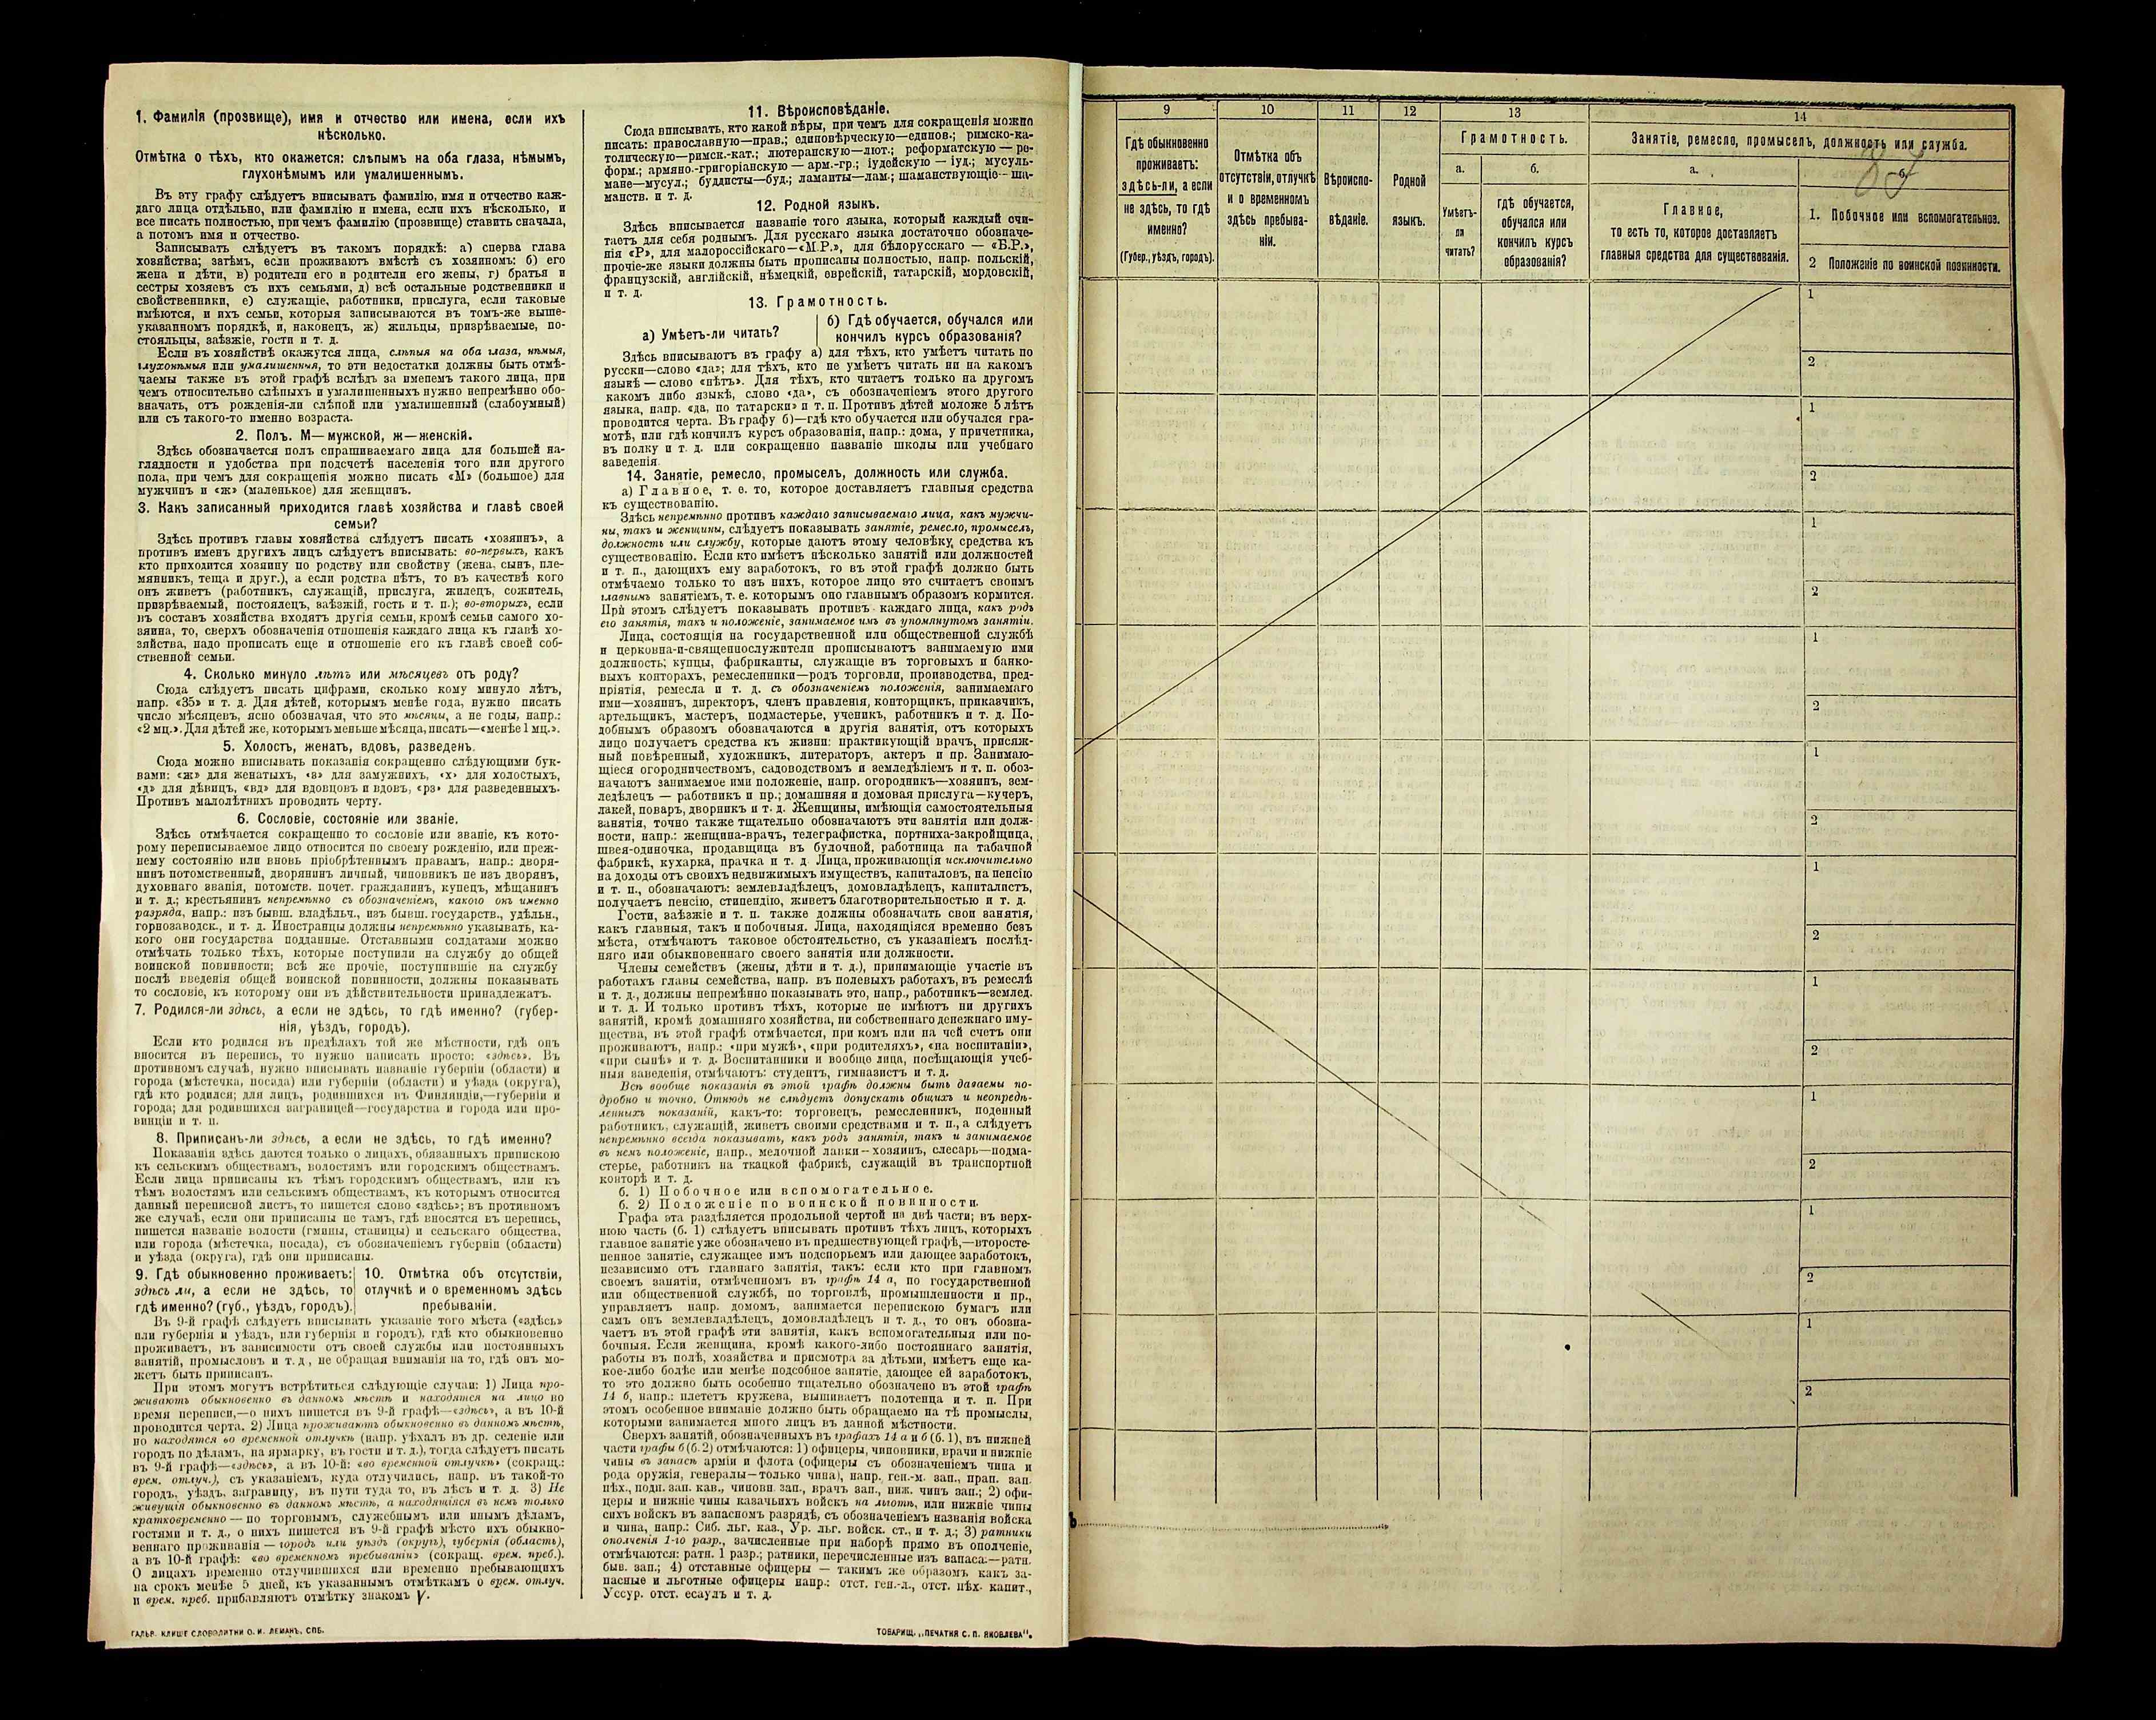 1. Фамилія (прозвище), имя и отчество или имена, если ихъ
нѣсколько.
Отмѣтка о тѣхъ, кто окажется: слѣпымъ на оба глаза, нѣмымъ,
глухонѣмымъ или умалишеннымъ.
Въ эту графу слѣдуетъ вписывать фамилію, имя и отчество каж-
даго лица отдѣльно, или фамилію и имена, если ихъ нѣсколько, и
все писать полностью, при чемъ фамилію (прозвище) ставить сначала,
а потомъ имя и отчество.
Записывать слѣдуетъ въ такомъ порядкѣ: а) сперва глава
хозяйства; затѣмъ, если проживаютъ вмѣстѣ съ хозяиномъ: б) его
жена и дѣти, в) родители его и родители его жены, г) братья и
сестры хозяевъ съ ихъ семьями, д) всѣ остальные родственники и
свойственники, е) служащіе, работники, прислуга, если таковые
имѣются, и ихъ семьи, которыя записываются въ томъ-же выше-
указанномъ порядкѣ, и, наконецъ, ж) жильцы, призрѣваемые, по-
стояльцы, заѣзжіе, гости и т. д.
Если въ хозяйствѣ окажутся лица, слѣпыя на оба глаза, нѣмыя,
глухонѣмыя или умалишенныя, то эти недостатки должны быть отмѣ-
чаемы также въ этой графѣ вслѣдъ за именемъ такого лица, при
чемъ относительно слѣпыхъ и умалишенныхъ нужно непремѣнно обо-
значать, отъ рожденія-ли слѣпой или умалишенный (слабоумный)
или съ такого-то именно возраста.
2. Полъ. М—мужской, ж—женскій.
Здѣсь обозначается полъ спрашиваемаго лица для большей на-
глядности и удобства при подсчетѣ населенія того или другого
пола, при чемъ для сокращенія можно писать «М» (большое) для
мужчинъ и «ж» (маленькое) для женщинъ.
3. Какъ записанный приходится главѣ хозяйства и главѣ своей
семьи?
Здѣсь противъ главы хозяйства слѣдуетъ писать «хозяинъ», а
противъ именъ другихъ лицъ слѣдуетъ вписывать: во-первыхъ, какъ
кто приходится хозяину по родству или свойству (жена, сынъ, пле-
мянникъ, теща и друг.), а если родства нѣтъ, то въ качествѣ кого
онъ живетъ (работникъ, служащій, прислуга, жилецъ, сожитель,
призрѣваемый, постоялецъ, заѣзжій, гость и т. п.); во-вторыхъ, если
въ составъ хозяйства входятъ другія семьи, кромѣ семьи самого хо-
зяина, то, сверхъ обозначенія отношенія каждаго лица къ главѣ хо-
зяйства, надо прописать еще и отношеніе его къ главѣ своей соб-
ственной семьи.
4. Сколько минуло лѣтъ или мѣсяцевъ отъ роду?
Сюда слѣдуетъ писать цифрами, сколько кому минуло лѣтъ,
напр. «35» и т. д. Для дѣтей, которымъ менѣе года, нужно писать
число мѣсяцевъ, ясно обозначая, что это мѣсяцы, а не годы, напр.:
«2 мц.». Для дѣтей же, которымъ меньше мѣсяца, писать—«менѣе 1 мц.».
5. Холостъ, женатъ, вдовъ, разведенъ.
Сюда можно вписывать показанія сокращенно слѣдующими бук-
вами: «ж» для женатыхъ, «з» для замужнихъ, «х» для холостыхъ,
«д» для дѣвицъ, «вд» для вдовцовъ и вдовъ, «рз» для разведенныхъ.
Противъ малолѣтнихъ проводить черту.
6. Сословіе, состояніе или званіе.
Здѣсь отмѣчается сокращенно то сословіе или званіе, къ кото-
рому переписываемое лицо относится по своему рожденію, или преж-
нему состоянію или вновь пріобрѣтеннымъ правамъ, напр.: дворя-
нинъ потомственный, дворянинъ личный, чиновникъ не изъ дворянъ,
духовнаго званія, потомств. почет. гражданинъ, купецъ, мѣщанинъ
и т. д.; крестьянинъ непремѣнно съ обозначеніемъ, какого онъ именно
разряда, напр.: изъ бывш. владѣльч., изъ бывш. государств., удѣльн.,
горнозаводск., и т. д. Иностранцы должны непремѣнно указывать, ка-
кого они государства подданные. Отставными солдатами можно
отмѣчать только тѣхъ, которые поступили на службу до общей
воинской повинности; всѣ же прочіе, поступившіе на службу
послѣ введенія общей воинской повинности, должны показывать
то сословіе, къ которому они въ дѣйствительности принадлежатъ.
7. Родился-ли здѣсь, а если не здѣсь, то гдѣ именно? (губер-
нія, уѣздъ, городъ).
Если кто родился въ предѣлахъ той же мѣстности, гдѣ онъ
вносится въ перепись, то нужно написать просто: «здѣсь». Въ
противномъ случаѣ, нужно вписывать названіе губерніи (области) и
города (мѣстечка, посада) или губерніи (области) и уѣзда (округа),
гдѣ кто родился; для лицъ, родившихся въ Финляндіи,—губерніи и
города; для родившихся заграницей—государства и города или про-
винціи и т. п.
8. Приписанъ-ли здѣсь, а если не здѣсь, то гдѣ именно?
Показанія здѣсь даются только о лицахъ, обязанныхъ припискою
къ сельскимъ обществамъ, волостямъ или городскимъ обществамъ.
Если лица приписаны къ тѣмъ городскимъ обществамъ, или къ
тѣмъ волостямъ или сельскимъ обществамъ, къ которымъ относится
данный переписной листъ, то пишется слово «здѣсь»; въ противномъ
же случаѣ, если они приписаны не тамъ, гдѣ вносятся въ перепись,
пишется названіе волости (гмины, станицы) и сельскаго общества,
или города (мѣстечка, посада), съ обозначеніемъ губерніи (области)
и уѣзда (округа), гдѣ они приписаны.
9. Гдѣ обыкновенно проживаетъ:
здѣсь ли, а если не здѣсь, то
гдѣ именно? (губ., уѣздъ, городъ).
10. Отмѣтка объ отсутствіи,
отлучкѣ и о временномъ здѣсь
пребываніи.
Въ 9-й графѣ слѣдуетъ вписывать указаніе того мѣста («здѣсь»
или губернія и уѣздъ, или губернія и городъ), гдѣ кто обыкновенно
проживаетъ, въ зависимости отъ своей службы или постоянныхъ
занятій, промысловъ и т. д., не обращая вниманія на то, гдѣ онъ мо-
жетъ быть приписанъ.
При этомъ могутъ встрѣтиться слѣдующіе случаи: 1) Лица про-
живаютъ обыкновенно въ данномъ мѣстѣ и находятся на лицо во
время переписи,—о нихъ пишется въ 9-й графѣ—«здѣсь», а въ 10-й
проводится черта. 2) Лица проживаютъ обыкновенно въ данномъ мѣстѣ,
но находятся во временной отлучкѣ (напр. уѣхалъ въ др. селеніе или
городъ по дѣламъ, на ярмарку, въ гости и т. д.), тогда слѣдуетъ писать
въ 9-й графѣ—«здѣсь», а въ 10-й: «во временной отлучкѣ» (сокращ.:
врем. отлуч.), съ указаніемъ, куда отлучились, напр. въ такой-то
городъ, уѣздъ, заграницу, въ пути туда то, въ лѣсъ и т. д. 3) Не
живущія обыкновенно въ данномъ мѣстѣ, а находящіяся въ немъ только
кратковременно — по торговымъ, служебнымъ или инымъ дѣламъ,
гостями и т. д., о нихъ пишется въ 9-й графѣ мѣсто ихъ обыкно-
веннаго проживанія — городъ или уѣздъ (округъ), губернія (область),
а въ 10-й графѣ: «во временномъ пребываніи» (сокращ. врем. преб.).
О лицахъ временно отлучившихся или временно пребывающихъ
на срокъ менѣе 5 дней, къ указаннымъ отмѣткамъ о врем. отлуч.
и врем. преб. прибавляютъ отмѣтку знакомъ V.
ГАЛЬВ. КЛИШЕ СЛОВОЛИТНИ О. И. ЛЕМАНЪ, СПБ.
11. Вѣроисповѣданіе.
Сюда вписывать, кто какой вѣры, при чемъ для сокращенія можно
писать: православную—прав.; единовѣрческую—единов.; римско-ка-
толическую—римск.-кат.; лютеранскую—лют.; реформатскую — ре-
форм.; армяно.-григоріанскую — арм.-гр.; іудейскую — іуд.; мусуль-
мане—мусул.; буддисты—буд.; ламаиты—лам.; шаманствующіе—ша-
манств. и т. д.
12. Родной языкъ.
Здѣсь вписывается названіе того языка, который каждый счи-
таетъ для себя роднымъ. Для русскаго языка достаточно обозначе-
нія «Р», для малороссійскаго—«М.Р.», для бѣлорусскаго — «Б.Р.»,
прочіе-же языки должны быть прописаны полностью, напр. польскій,
французскій, англійскій, нѣмецкій, еврейскій, татарскій, мордовскій,
и т. д.
13. Грамотность.
а) Умѣетъ-ли читать?
б) Гдѣ обучается, обучался или
кончилъ курсъ образованія?
Здѣсь вписываютъ въ графу а) для тѣхъ, кто умѣетъ читать по
русски—слово «да»; для тѣхъ, кто не умѣетъ читать ни на какомъ
языкѣ — слово «нѣтъ». Для тѣхъ, кто читаетъ только на другомъ
какомъ либо языкѣ, слово «да», съ обозначеніемъ этого другого
языка, напр. «да, по татарски» и т. п. Противъ дѣтей моложе 5 лѣтъ
проводится черта. Въ графу б)—гдѣ кто обучается или обучался гра-
мотѣ, или гдѣ кончилъ курсъ образованія, напр.: дома, у причетника,
въ полку и т. д. или сокращенно названіе школы или учебнаго
заведенія.
14. Занятіе, ремесло, промыселъ, должность или служба.
а) Главное, т. е. то, которое доставляетъ главныя средства
къ существованію.
Здѣсь непремѣнно противъ каждаго записываемаго лица, какъ мужчи-
ны, такъ и женщины, слѣдуетъ показывать занятіе, ремесло, промыселъ,
должность или службу, которые даютъ этому человѣку средства къ
существованію. Если кто имѣетъ нѣсколько занятій или должностей
и т. п., дающихъ ему заработокъ, то въ этой графѣ должно быть
отмѣчаемо только то изъ нихъ, которое лицо это считаетъ своимъ
главнымъ занятіемъ, т. е. которымъ оно главнымъ образомъ кормится.
При этомъ слѣдуетъ показывать противъ каждаго лица, какъ родъ
его занятія, такъ и положеніе, занимаемое имъ въ упомянутомъ занятіи.
Лица, состоящія на государственной или общественной службѣ
и церковно-и-священнослужители прописываютъ занимаемую ими
должность; купцы, фабриканты, служащіе въ торговыхъ и банко-
выхъ конторахъ, ремесленники—родъ торговли, производства, пред-
пріятія, ремесла и т. д. съ обозначеніемъ положенія, занимаемаго
ими—хозяинъ, директоръ, членъ правленія, конторщикъ, приказчикъ,
артельщикъ, мастеръ, подмастерье, ученикъ, работникъ и т. д. По-
добнымъ образомъ обозначаются и другія занятія, отъ которыхъ
лицо получаетъ средства къ жизни: практикующій врачъ, присяж-
ный повѣренный, художникъ, литераторъ, актеръ и пр. Занимаю-
щіеся огородничествомъ, садоводствомъ и земледѣліемъ и т. п. обоз-
начаютъ занимаемое ими положеніе, напр. огородникъ—хозяинъ, зем-
ледѣлецъ — работникъ и пр.; домашняя и домовая прислуга—кучеръ,
лакей, поваръ, дворникъ и т. д. Женщины, имѣющія самостоятельныя
занятія, точно также тщательно обозначаютъ эти занятія или долж-
ности, напр.: женщина-врачъ, телеграфистка, портниха-закройщица,
швея-одиночка, продавщица въ булочной, работница на табачной
фабрикѣ, кухарка, прачка и т. д. Лица, проживающія исключительно
на доходы отъ своихъ недвижимыхъ имуществъ, капиталовъ, на пенсію
и т. п., обозначаютъ: землевладѣлецъ, домовладѣлецъ, капиталистъ,
получаетъ пенсію, стипендію, живетъ благотворительностью и т. д.
Гости, заѣзжіе и т. п. также должны обозначать свои занятія,
какъ главныя, такъ и побочныя. Лица, находящіяся временно безъ
мѣста, отмѣчаютъ таковое обстоятельство, съ указаніемъ послѣд-
няго или обыкновеннаго своего занятія или должности.
Члены семействъ (жены, дѣти и т. д.), принимающіе участіе въ
работахъ главы семейства, напр. въ полевыхъ работахъ, въ ремеслѣ
и т. д., должны непремѣнно показывать это, напр., работникъ—землед.
и т. д. И только противъ тѣхъ, которые не имѣютъ ни другихъ
занятій, кромѣ домашняго хозяйства, ни собственнаго денежнаго иму-
щества, въ этой графѣ отмѣчается, при комъ или на чей счетъ они
проживаютъ, напр.: «при мужѣ», «при родителяхъ», «на воспитаніи»,
«при сынѣ» и т. д. Воспитанники и вообще лица, посѣщающія учеб-
ныя заведенія, отмѣчаютъ: студентъ, гимназистъ и т. д.
Всѣ вообще показанія въ этой графѣ должны быть даваемы по-
дробно и точно. Отнюдь не слѣдуетъ допускать общихъ и неопредѣ-
ленныхъ показаній, какъ-то: торговецъ, ремесленникъ, поденный
работникъ, служащій, живетъ своими средствами и т. п., а слѣдуетъ
непремѣнно всегда показывать, какъ родъ занятія, такъ и занимаемое
въ немъ положеніе, напр., мелочной лавки—хозяинъ, слесарь—подма-
стерье, работникъ на ткацкой фабрикѣ, служащій въ транспортной
конторѣ и т. д.
б. 1) Побочное или вспомогательное.
б. 2) Положеніе по воинской повинности.
Графа эта раздѣляется продольной чертой на двѣ части; въ верх-
нюю часть (б. 1) слѣдуетъ вписывать противъ тѣхъ лицъ, которыхъ
главное занятіе уже обозначено въ предшествующей графѣ,—второсте-
пенное занятіе, служащее имъ подспорьемъ или дающее заработокъ,
независимо отъ главнаго занятія, такъ: если кто при главномъ
своемъ занятіи, отмѣченномъ въ графѣ 14 а, по государственной
или общественной службѣ, по торговлѣ, промышленности и пр.,
управляетъ напр. домомъ, занимается перепискою бумагъ или
самъ онъ землевладѣлецъ, домовладѣлецъ и т. д., то онъ обозна-
чаетъ въ этой графѣ эти занятія, какъ вспомогательныя или по-
бочныя. Если женщина, кромѣ какого-либо постояннаго занятія,
работы въ полѣ, хозяйства и присмотра за дѣтьми, имѣетъ еще ка-
кое-либо болѣе или менѣе подсобное занятіе, дающее ей заработокъ,
то это должно быть особенно тщательно обозначено въ этой графѣ
14 б, напр.: плететъ кружева, вышиваетъ полотенца и т. п. При
этомъ особенное вниманіе должно быть обращаемо на тѣ промыслы,
которыми занимается много лицъ въ данной мѣстности.
Сверхъ занятій, обозначенныхъ въ графахъ 14 а и б (б. 1), въ нижней
части графы б (б. 2) отмѣчаются: 1) офицеры, чиновники, врачи и нижніе
чины въ запасѣ арміи и флота (офицеры съ обозначеніемъ чина и
рода оружія, генералы—только чина), напр. ген.-м. зап., прап. зап.
пѣх., подп. зап. кав., чиновн. зап., врачъ зап., ниж. чинъ зап.; 2) офи-
церы и нижніе чины казачьихъ войскъ на льготѣ, или нижніе чины
сихъ войскъ въ запасномъ разрядѣ, съ обозначеніемъ названія войска
и чина, напр.: Сиб. льг. каз., Ур. льг. войск. ст., и т. д.; 3) ратники
ополченія 1-го разр., зачисленные при наборѣ прямо въ ополченіе,
отмѣчаются: ратн. 1 разр.; ратники, перечисленные изъ запаса:—ратн.
быв. зап.; 4) отставные офицеры — такимъ же образомъ какъ за-
пасные и льготные офицеры напр.: отст. ген.-л., отст. пѣх. капит.,
Уссур. отст. есаулъ и т. д.
ТОВАРИЩ. „ПЕЧАТНЯ С. П. ЯКОВЛЕВА".
9
10
11
12
13
14
Гдѣ обыкновенно
проживаетъ:
здѣсь-ли, а если
не здѣсь, то гдѣ
именно?
(Губер., уѣздъ, городъ).
Отмѣтка объ
отсутствіи, отлучкѣ
и о временномъ
здѣсь пребыва-
ніи.
Вѣроиспо-
вѣданіе.
Родной
языкъ.
Грамотность.
а.
Умѣетъ-
ли
читать?
б.
гдѣ обучается,
обучался или
кончилъ курсъ
образованія?
Занятіе, ремесло, промыселъ, должность или служба.
а.
Главное,
то есть то, которое доставляетъ
главныя средства для существованія.
б.
87
1. Побочное или вспомогательное.
2 Положеніе по воинской повинности.
1
2
1
2
1
2
1
2
1
2
1
2
1
2
1
2
1
2
1
2